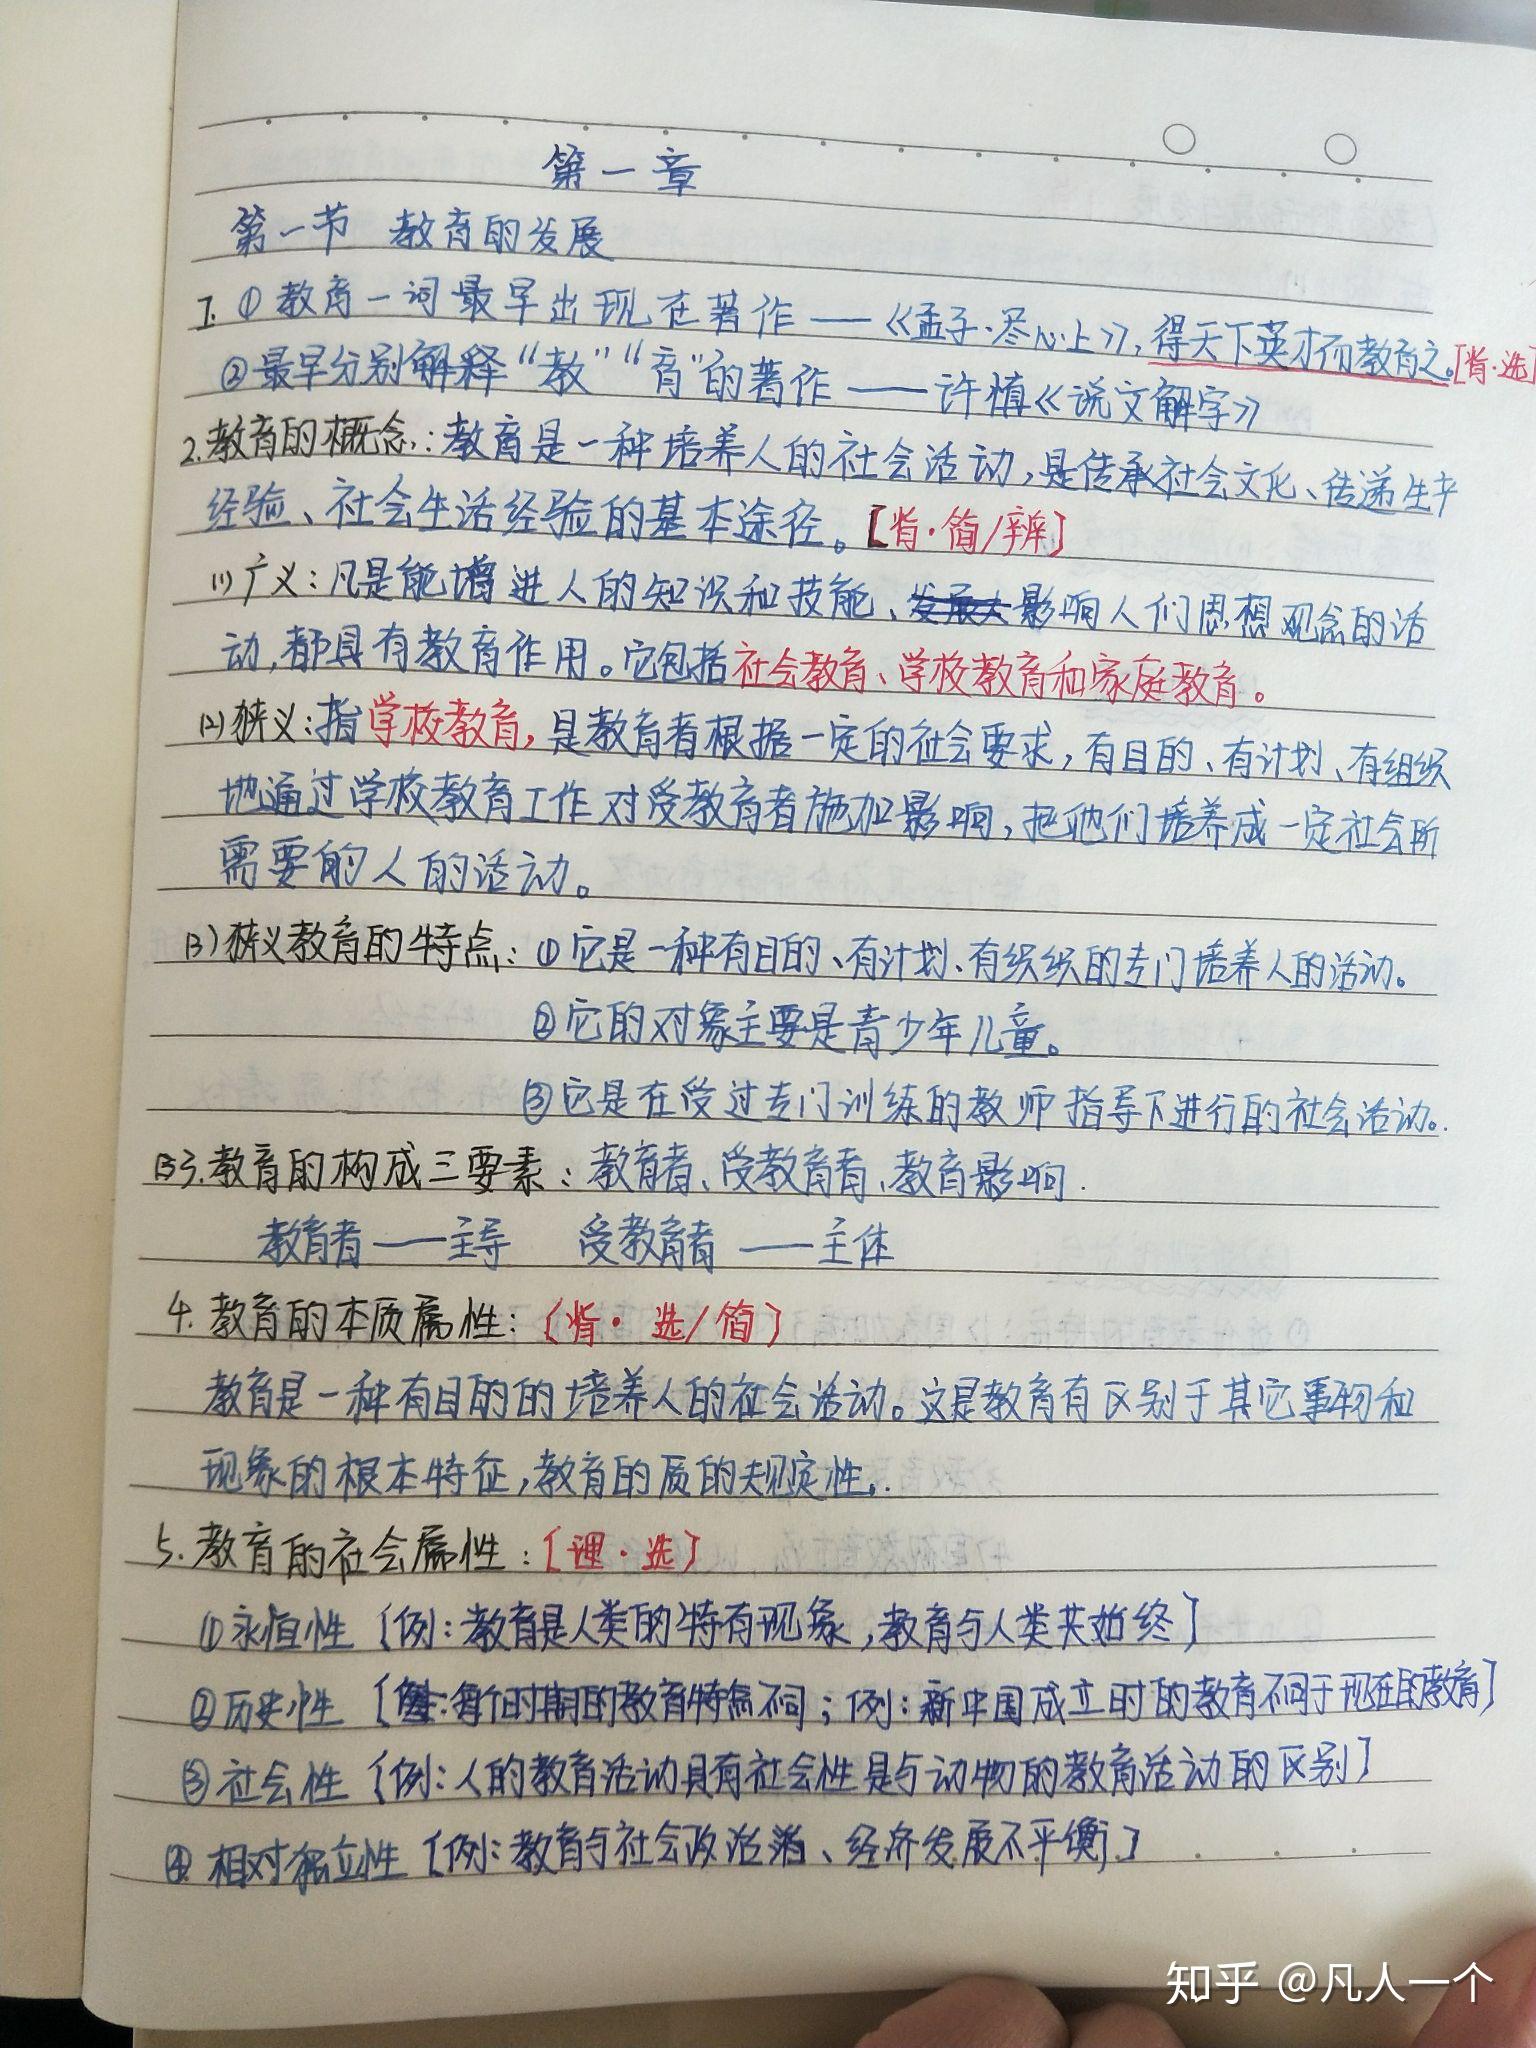 第一章
第一节 教育的发展
1. ①教育一词最早出现在著作——《孟子·尽心上》,得天下英才而教育之。[背·选]
②最早分别解释“教”“育”的著作——许慎《说文解字》
2.教育的概念:教育是一种培养人的社会活动,是传承社会文化、传递生产
经验、社会生活经验的基本途径。[背·简/辨]
(1)广义:凡是能增进人的知识和技能、影响人们思想观念的活
动,都具有教育作用。它包括社会教育、学校教育和家庭教育。
(2)狭义:指学校教育,是教育者根据一定的社会要求,有目的、有计划、有组织
地通过学校教育工作对受教育者施加影响,把他们培养成一定社会所
需要的人的活动。
(3)狭义教育的特点:①它是一种有目的、有计划、有织织的专门培养人的活动。
②它的对象主要是青少年儿童。
③它是在受过专门训练的教师指导下进行的社会活动。
3.教育的构成三要素:教育者、受教育者、教育影响.
教育者——主导 受教育者——主体
4.教育的本质属性:[背·选/简]
教育是一种有目的的培养人的社会活动。这是教育有区别于其它事物和
现象的根本特征,教育的质的规定性.
5.教育的社会属性:[理·选]
①永恒性[例:教育是人类的特有现象,教育与人类共始终]
②历史性[每个时期的教育特点不同;例:新中国成立时的教育不同于现在的教育]
③社会性[例:人的教育活动具有社会性是与动物的教育活动的区别]
④相对独立性[例:教育与社会政治、经济发展不平衡]
知乎 @凡人一个